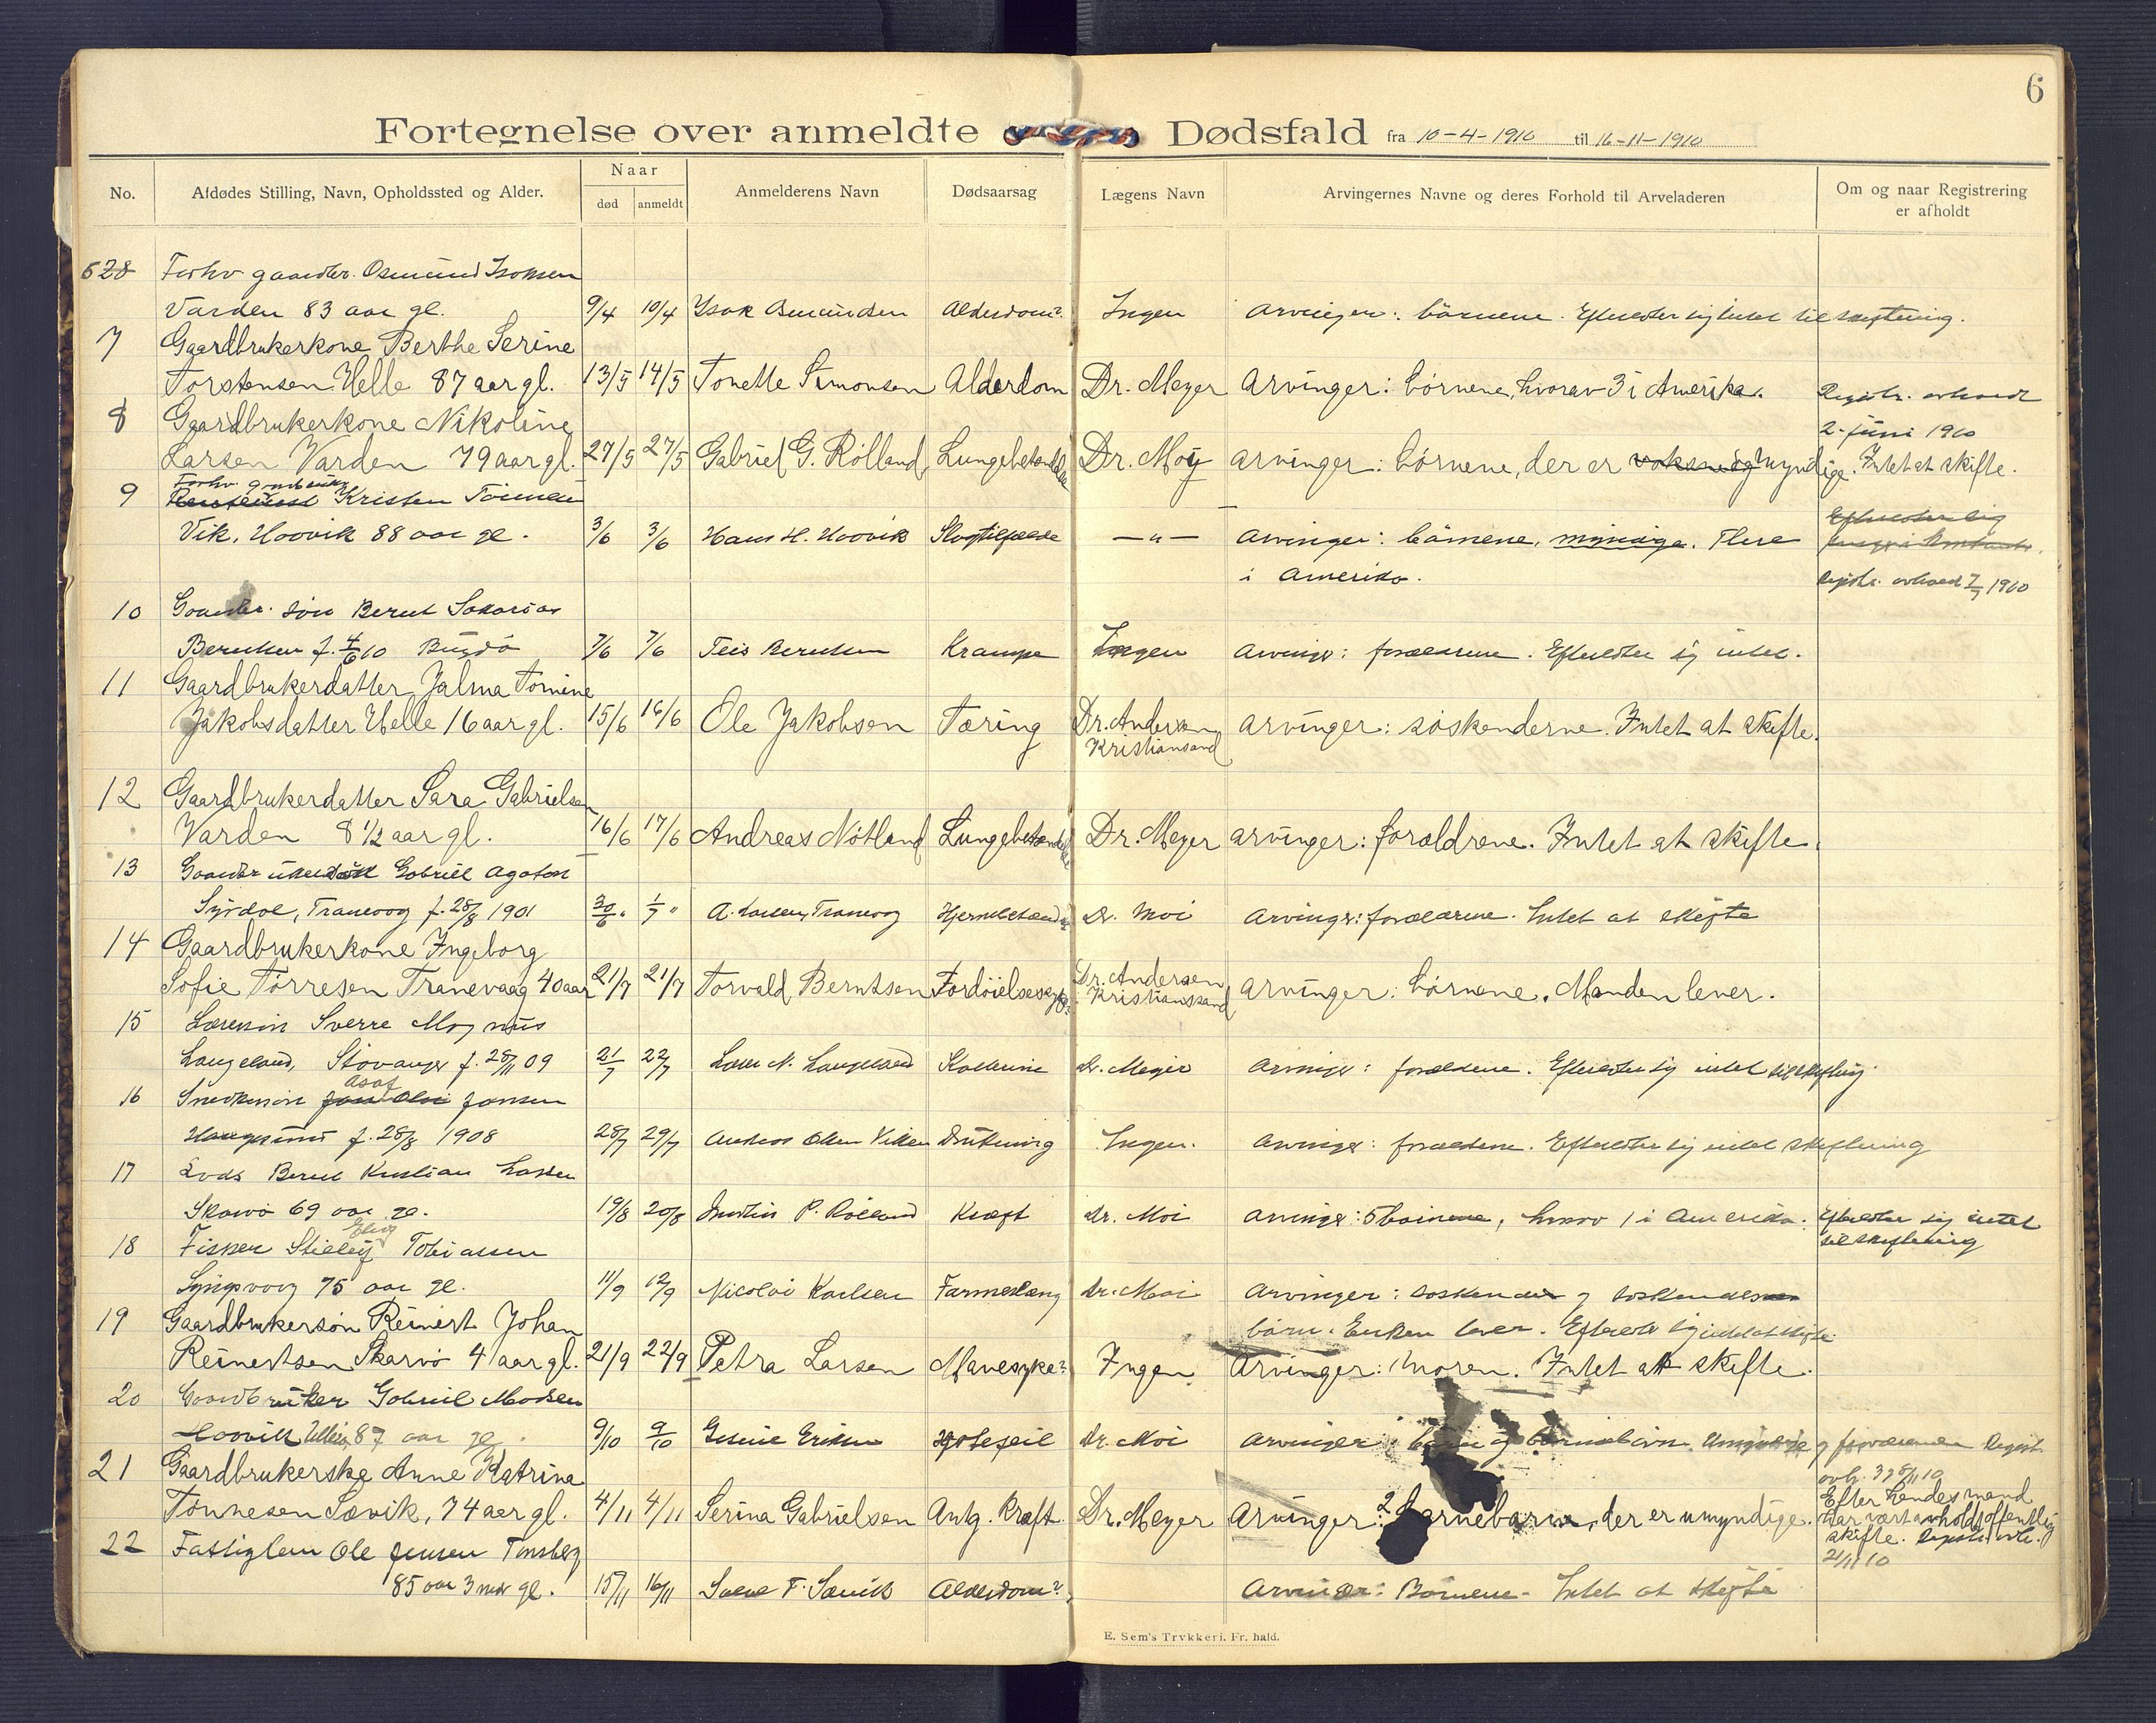 6
Fortegnelse over anmeldte Dødsfald fra 10-4-1910 til 16-11-1910
No. Afdødes Stilling, Navn, Opholdssted og Alder. Naar død anmeldt Anmelderens Navn Dødsaarsag Lægens Navn Arvingernes Navne og deres Forhold til Arveladeren Om og naar Registrering er afholdt
628 Forhv gaardbr. Osmund Isaksen
Varden 83 aar gl. 9/4 10/4 Isak Asmundsen Alderdom? Ingen Arvinger: børnene. Efterlater sig intet til skiftning.
7 Gaardbrukerkone Berthe Serine
Torstensen Helle 87 aar gl. 13/5 14/5 Tonette Simonsen Alderdom Dr. Meyer Arvinger: børnene, hvorav 3 i Amerika. Registr. avholdt
2. juni 1910
8 Gaardbrukerkone Nikoline
Larsen Varden 79 aar gl. 27/5 27/5 Gabriel G. Rölland Lungebetændelse Dr. Moy arvinger: børnene, der er voksne og myndige. Intet at skifte.
9 Forhv. gaardbruker Kristen Tönnesen
Vik, Haavik 88 aar gl. 3/6 3/6 Hans H. Haavik Slagtilfælde — " — Arvinger: börnene, myndige. Flere
i Amerika. Registr. avholdt 7/7 1910
10 Gaardbr. sön Bernt Sakarias
Berntsen f. 4/6 10 7/6 7/6 Teis Berntsen Krampe Ingen Arvinger: forældrene. Efterlater sig intet.
11 Gaardbrukerdatter Jalma Tomine
Jakobsdatter Helle 16 aar gl. 15/6 16/6 Ole Jakobsen Tæring Dr. Andersen Kristiansand arvinger: søskenderne. Intet at skifte.
12 Gaardbrukerdatter Sara Gabrielsen
Varden 8 1/2 aar gl. 16/6 17/6 Andreas Nötland Lungebetændelse Dr. Meyer arvinger: forældrene. Intet at skifte.
13 Gaardbrukersön Gabriel Agaton
Syrdal, Tranevaag f. 28/8 1901 30/6 1/7 A. Larsen, Tranevaag Hjernebetændelse Dr. Moi Arvinger: forældrene. Intet at skifte
14 Gaardbrukerkone Ingeborg
Sofie Törresen Tranevaag 40 aar 21/7 21/7 Torvald Berntsen Fordöielsessyge Dr. Andersen Kristianssand arvinger: børnene. Manden lever.
15 Lærersön Sverre Magnus
Langeland, Stavanger f. 28/11 09 21/7 22/7 Lars N. Langeland Kolerine Dr. Meyer Arvinger: forældrene. Efterlater sig intet til skiftning.
16 Snedkersön Asaf Jansen
Haugesund f. 28/8 1908 28/7 29/7 Andreas Olsen Viken Drukning Ingen. Arvinger: forældrene. Efterlater sig intet skiftning
17 Lods Bernt Kristian Larsen
Skarvö 69 aar gl. 19/8 20/8 P. Rölland Kræft Dr. Moi Arvinger: 5 börnene, hvorav 1 i Amerika. Efterlater sig intet
til skiftning
18 Fisker Tobiassen
Syngvaag 75 aar gl. 11/9 12/9 Nicolai Karlsen Tarmeslæng Dr. Moi Arvinger: søskender og søskendes
börn. Enken lever. Efterlater sig intet at skifte.
19 Gaardbrukersön Reinert Johan
Reinertsen Skarvö 4 aar gl. 21/9 22/9 Petra Larsen Mavesyke? Ingen. Arvinger: moren. Intet at skifte.
20 Gaardbruker Gabriel Madsen
Haavik 87 aar gl. 9/10 9/10 Gesine Eriksen Hjertefeil Dr. Moi Arvinger: børn og börnebörn. Umyndige og fraværende. Regist.
avh. 8/11 10
21 Gaardbrukerske Anne Katrina
Tönnesen Sævik, 74 aar gl. 4/11 4/11 Serina Gabrielsen Antg. Kræft. Dr. Meyer Arvinger: 2 barnebarn, der er umyndige. Efter hendes mand
har vært avholdt offentlig
skifte. Registr. avh.
21/11 10
22 Fattiglem Ole Jensen Tonsberg
85 aar 3 mdr gl. 15/11 16/11 F. Sævik Alderdom? Arvinger: Börnene. Intet at skifte
E. Sem's Trykkeri, Fr.hald.